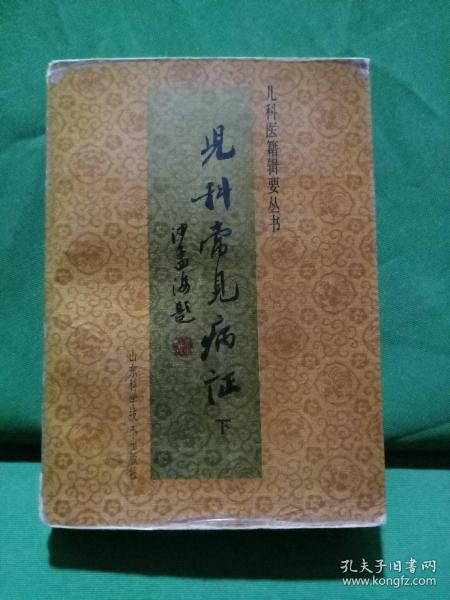 儿科医籍辑要丛书
児科常见病证
下
沙孟海题
山东科学技术出版社
孔夫子旧书网
www.kongfz.com